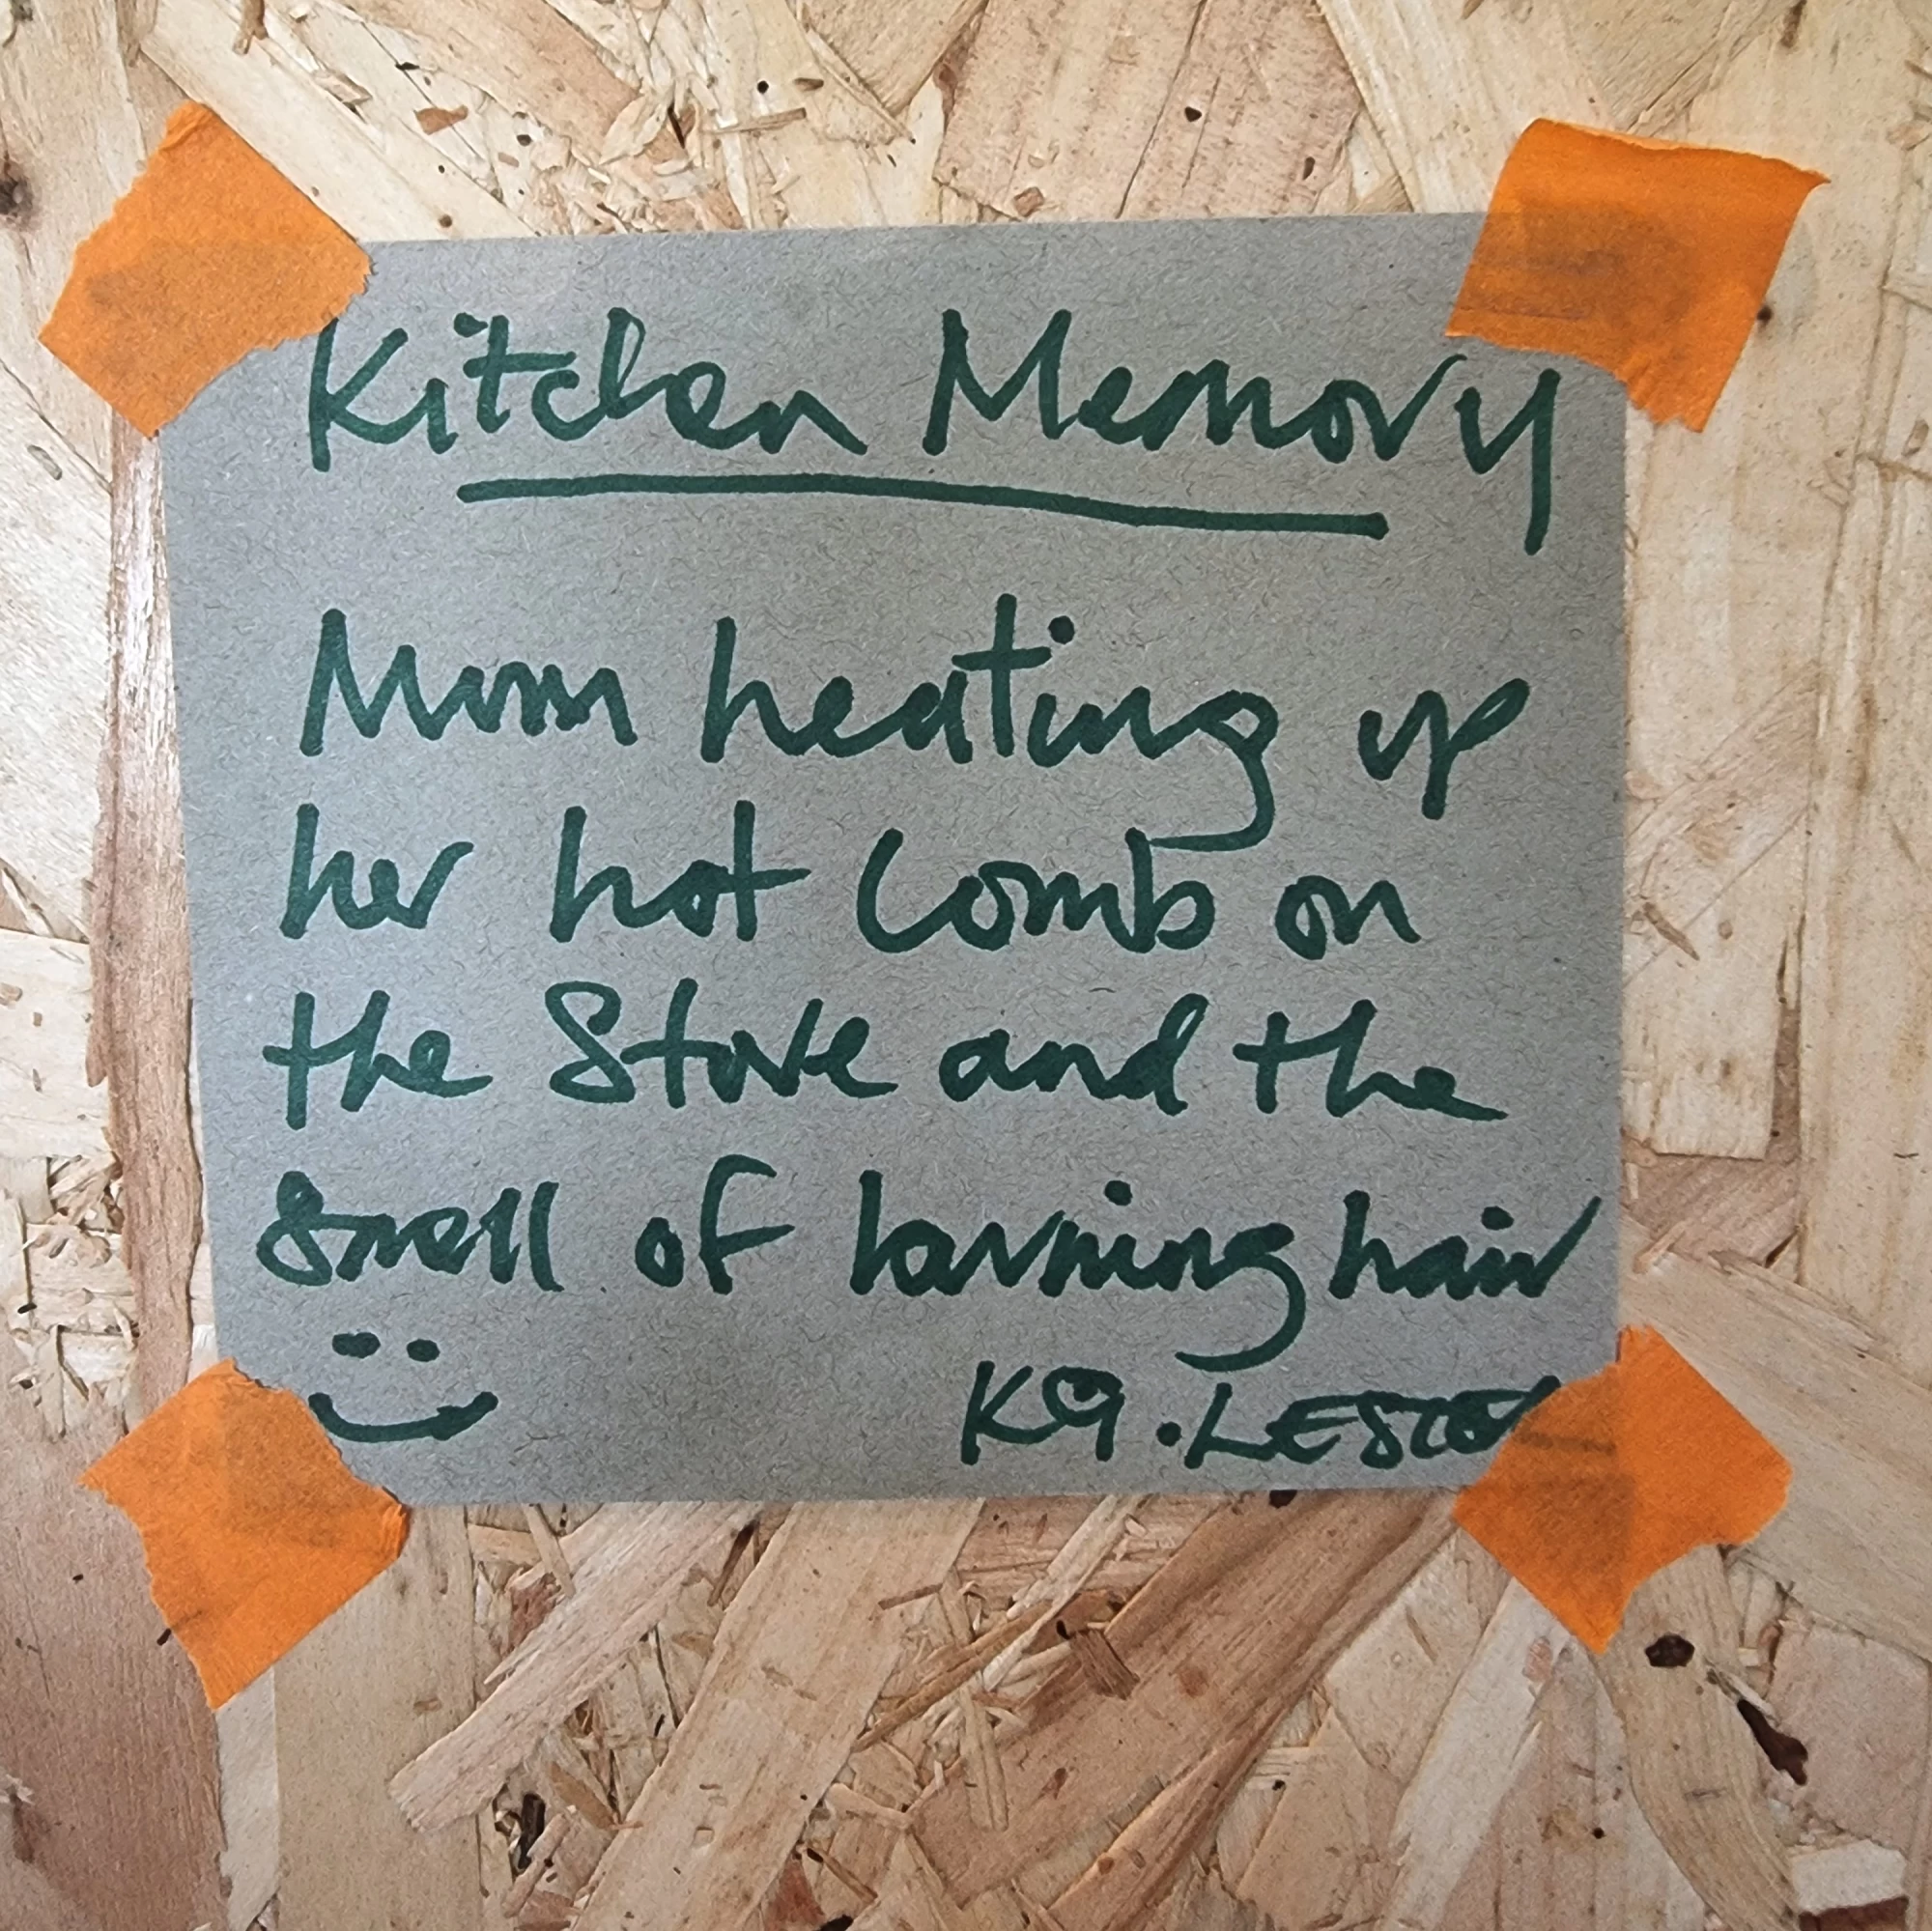 Kitchen Memory
Mom heating up
her hot comb on
the Stove and the
Smell of burning hair